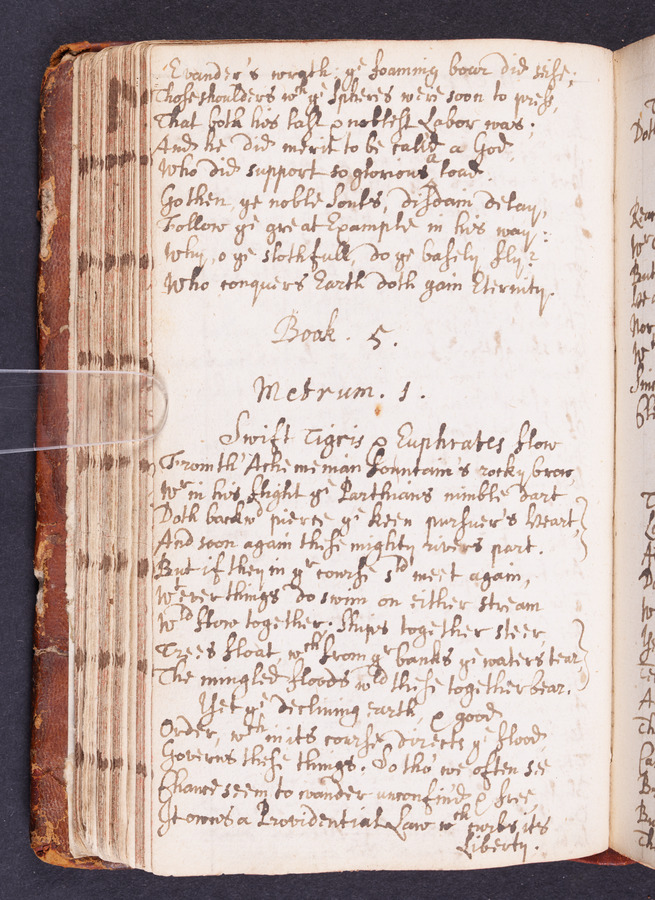 Evander's wrath ye foaming boar did seise;
Those shoulders wch ye spheres were soon to press,
That both his last & noblest Labor was;
And he did merit to be calld a God,
Who did support so glorious a load.
Go then, ye noble souls, disdain delay,
Follow ye great Example in his way:
Why, o ye slothfull, do ye basely fly?
Who conquers Earth doth gain Eternity.
Book. 5.
Metrum. 1.
Swift Tigris & Euphrates flow
From th' Achemenian fountain's rocky brow,
Wr in his flight ye Parthians nimble dart
Doth backwd pierce ye keen pursuer's heart,
And soon again these mighty rivers part.
But if they in yr course sd meet again,
Wtever things do swim on either stream
Wld flow together. Ships together steer,
Trees float, wch from yr banks ye waters tear,
The mingled floods wld these together bear.
Yet ye declining earth, & good
Order, wch in its course directs ye flood,
Governs these things. So tho' we often see
Chance seem to wander unconfin'd & free,
It owns a Providential Law wch curbs its
Liberty.